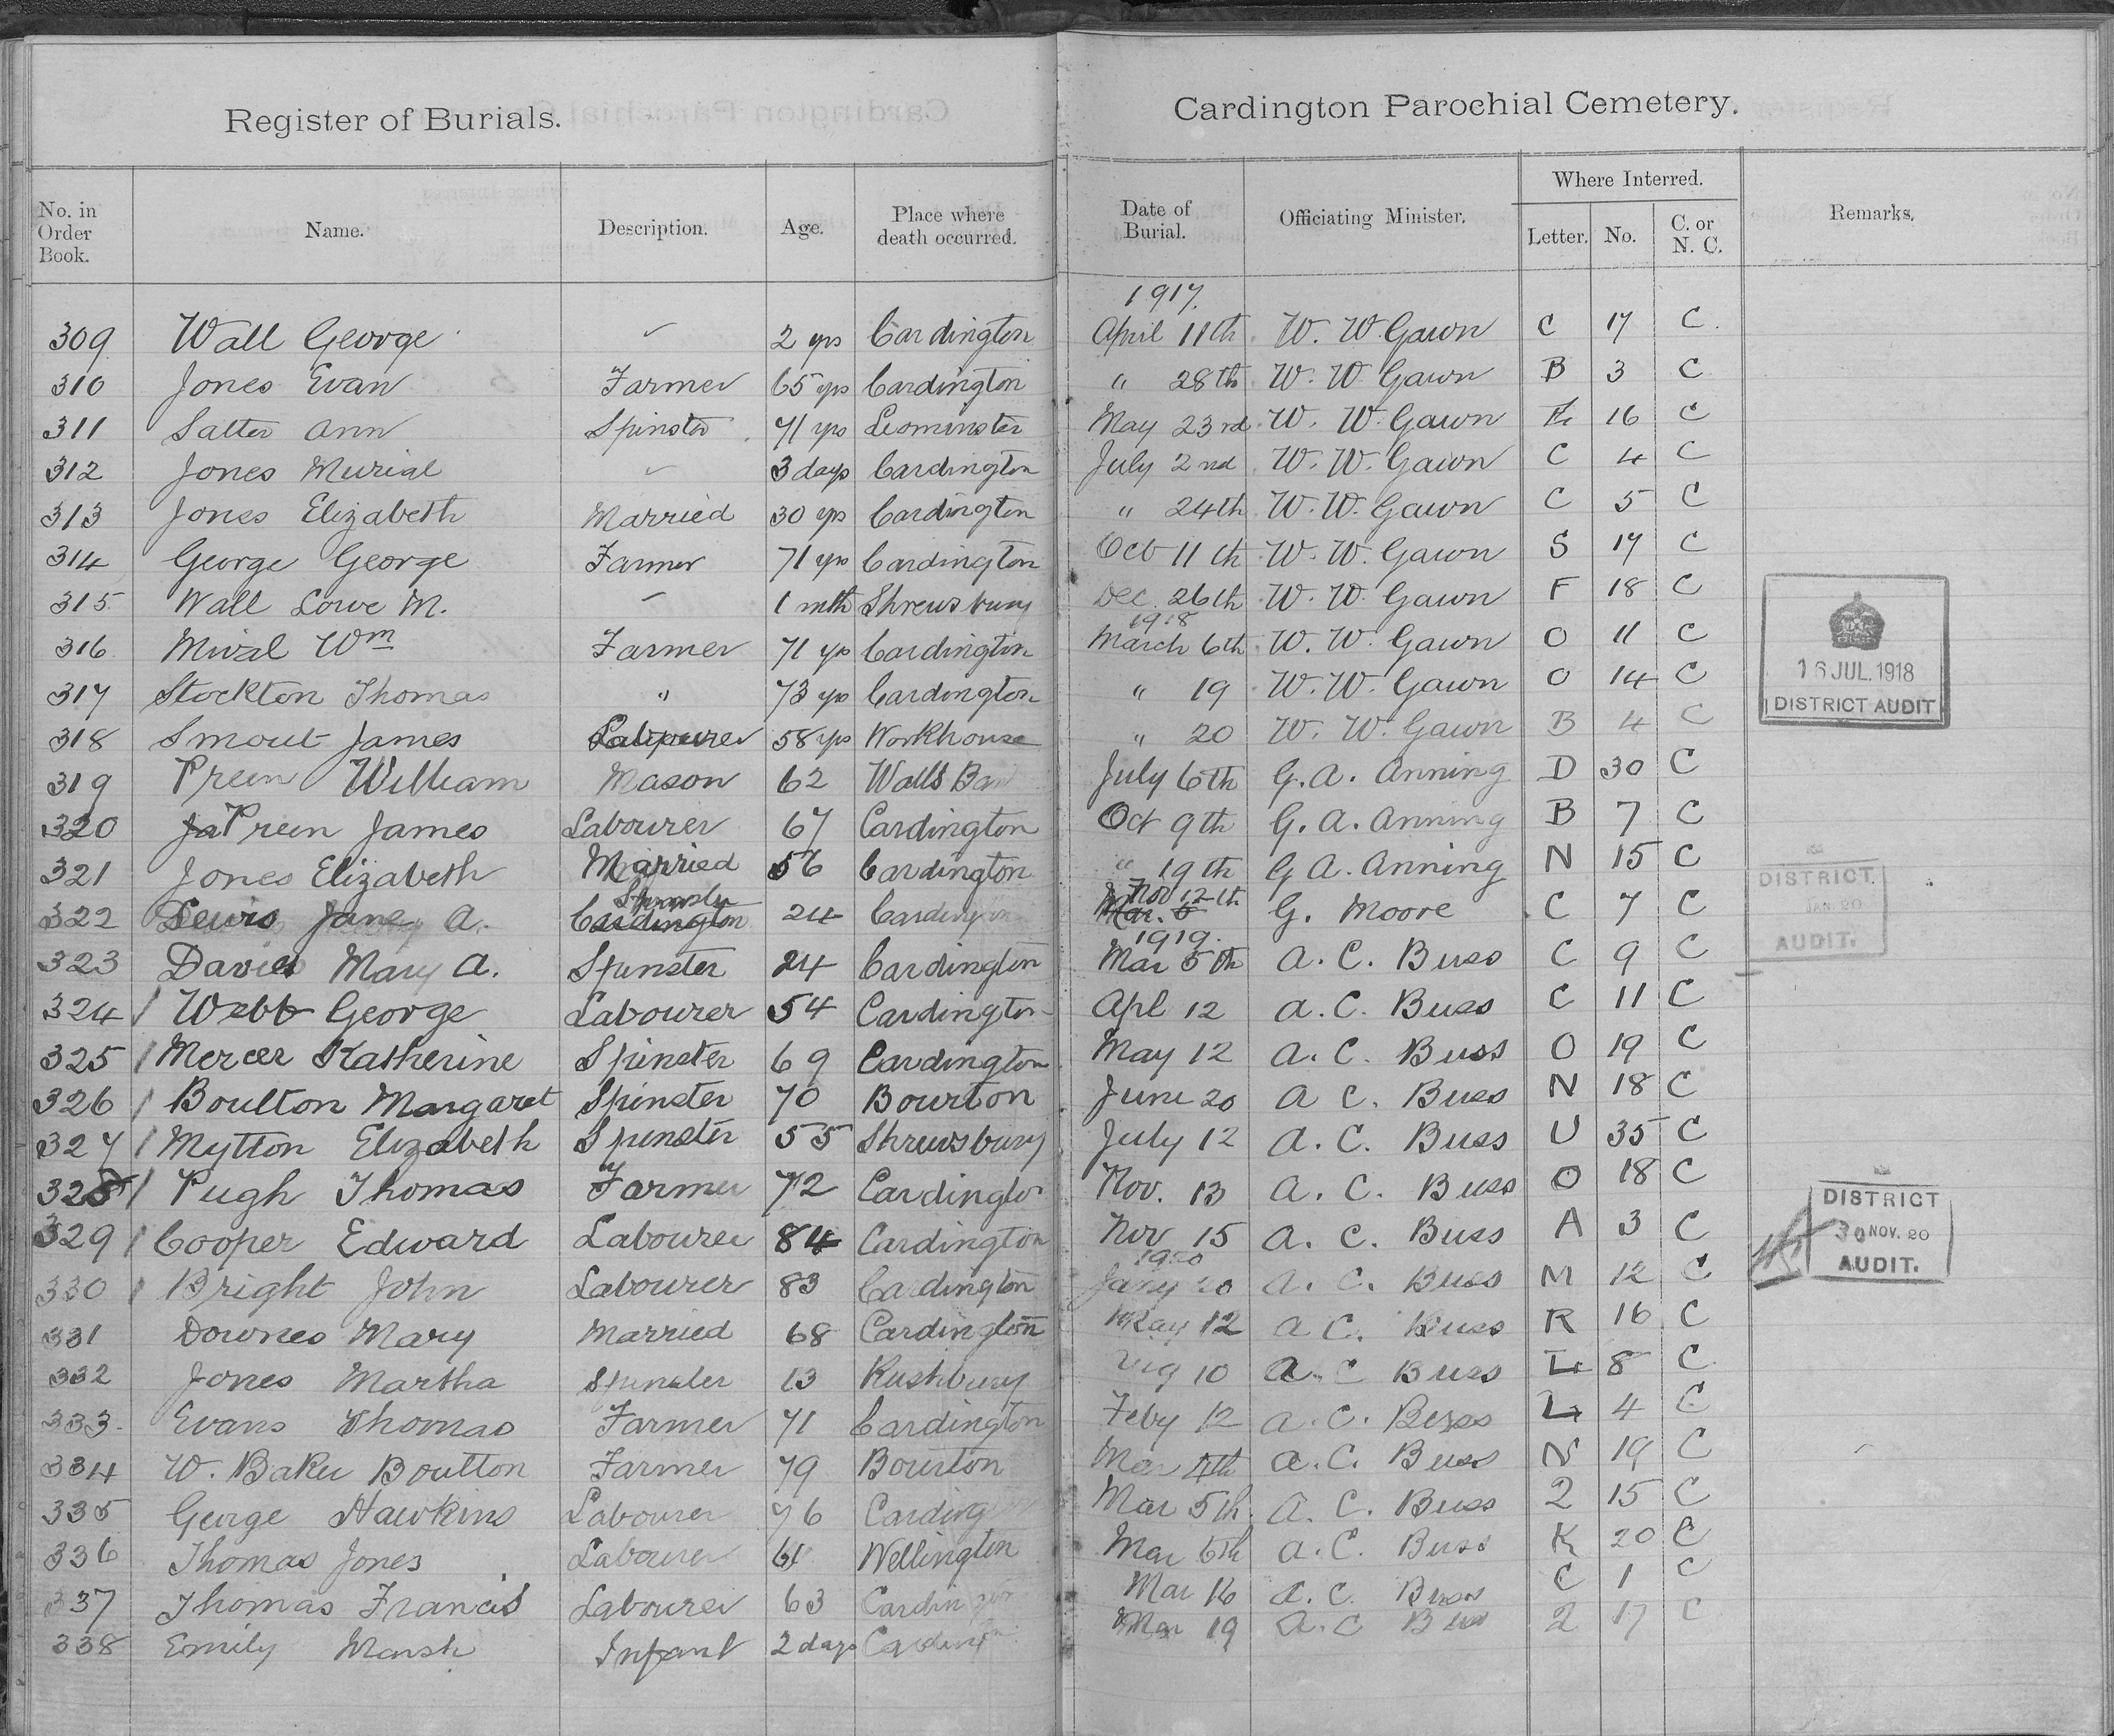 Register of Burials. Cardington Parochial Cemetery.
No. in Order Book. Name. Description. Age. Place where death occurred. Date of Burial. Officiating Minister. Where Interred. Letter. No. C. or N. C. Remarks.
1917.
309 Wall George 2 yrs Cardington April 11th W. W. Gawn C 17 C.
310 Jones Evan Farmer 65 yrs Cardington " 28th W. W. Gawn B 3 C
311 Salter Ann Spinster 71 yrs Leominster May 23rd W. W. Gawn 16 C
312 Jones Murial 3 days Cardington July 2nd W. W. Gawn C 4 C
313 Jones Elizabeth Married 30 yrs Cardington " 24th W. W. Gawn C 5 C
314 George George Farmer 71 yrs Cardington Oct 11th W. W. Gawn S 17 C
315 Wall Lowe M. 1 mth Shrewsbury Dec. 26th W. W. Gawn F 18 C
1918
316 Wm Farmer 71 yrs Cardington March 6th W. W. Gawn O 11 C
317 Stockton Thomas " 73 yrs Cardington " 19 W. W. Gawn O 14 C
16 JUL. 1918
DISTRICT AUDIT
318 Smout James Labourer 58 yrs Workhouse " 20 W. W. Gawn B 4 C
319 Preen William Mason 62 Walls July 6th G. A. Anning D 30 C
320 Ja Preen James Labourer 67 Cardington Oct 9th G. A. Anning B 7 C
321 Jones Elizabeth Married 56 Cardington " 19th G. A. Anning N 15 C
DISTRICT
JAN. 20
AUDIT.
322 Lewis Jane A. Cardington Spinster 24 Cardington Nov 12th G. Moore C 7 C
1919.
323 Davies Mary A. Spinster 24 Cardington Mar 5th A. C. Buss C 9 C
324 Webb George Labourer 54 Cardington Apl 12 A. C. Buss C 11 C
325 Mercer Katherine Spinster 69 Cardington May 12 A. C. Buss O 19 C
326 Boulton Margaret Spinster 70 Bourton June 20 A. C. Buss N 18 C
327 Mytton Elizabeth Spinster 55 Shrewsbury July 12 A. C. Buss U 35 C
328 Pugh Thomas Farmer 72 Cardington Nov. 13 A. C. Buss O 18 C
DISTRICT
30 NOV. 20
AUDIT.
329 Cooper Edward Labourer 84 Cardington Nov 15 A. C. Buss A 3 C
1920
330 Bright John Labourer 83 Cardington Jany 20 A. C. Buss M 12 C
331 Downes Mary Married 68 Cardington May 12 A. C. Buss R 16 C
332 Jones Martha Spinster 13 Rushbury Aug 10 A. C. Buss L 8 C
333. Evans Thomas Farmer 71 Cardington Feby 12 A. C. Buss L 4 C
334 W. Baker Boulton Farmer 79 Bourton Mar 4th A. C. Buss N 19 C
335 George Hawkins Labourer 76 Cardington Mar 5th A. C. Buss 2 15 C
336 Thomas Jones Labourer 61 Wellington Mar 6th A. C. Buss K 20 C
337 Thomas Francis Labourer 63 Cardington Mar 16 A. C. Buss C 1 C
338 Emily Marsh Infant 2 days Cardington Mar 19 A. C. Buss 2 17 C